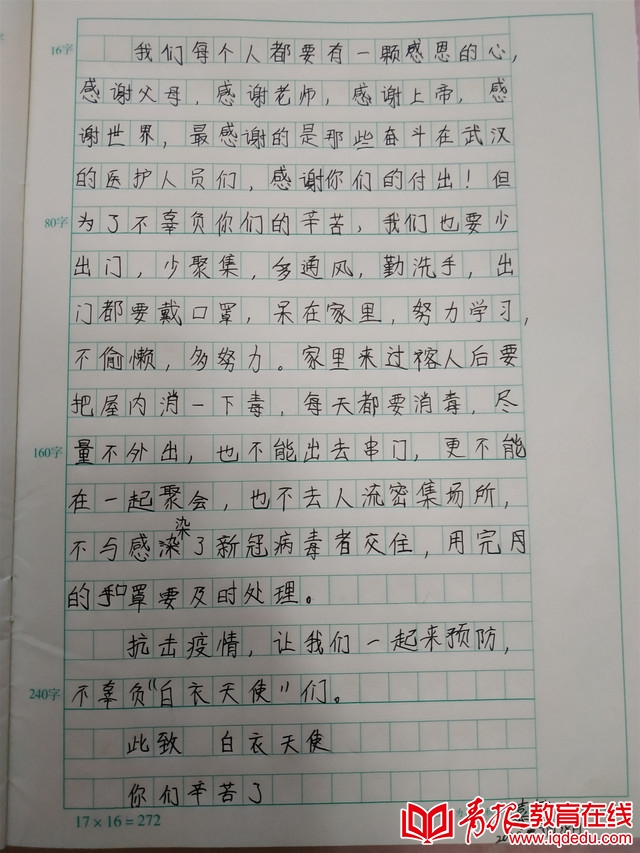 16字
我们每个人都要有一颗感恩的心，
感谢父母，感谢老师，感谢上帝，感
谢世界，最感谢的是那些奋斗在武汉
的医护人员们，感谢你们的付出！但
80字
为了不辜负你们的辛苦，我们也要少
出门，少聚集，多通风，勤洗手，出
门都要戴口罩，呆在家里，努力学习，
不偷懒，多努力。家里来过人后要
把屋内消一下毒，每天都要消毒，尽
160字
量不外出，也不能出去串门，更不能
在一起聚会，也不去人流密集场所，
不与感染了新冠病毒者交往，用完
染
的口罩要及时处理。
抗击疫情，让我们一起来预防，
240字
不辜负“白衣天使”们。
此致 白衣天使
你们辛苦了
17×16=272
青报教育在线
www.iqdedu.com